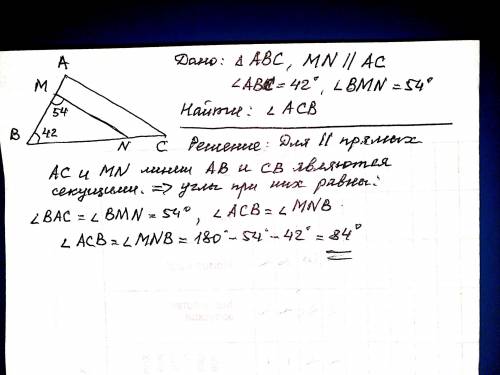 A
M
54
B
42
N
C
Дано: △ ABC, MN // AC
∠ABC = 42°, ∠BMN = 54°
Найти: ∠ ACB
Решение: Для // прямых
AC и MN линии AB и CB являются
секущими. => углы при них равны:
∠BAC = ∠BMN = 54°, ∠ACB = ∠MNB.
∠ACB = ∠MNB = 180° - 54° - 42° = 84°